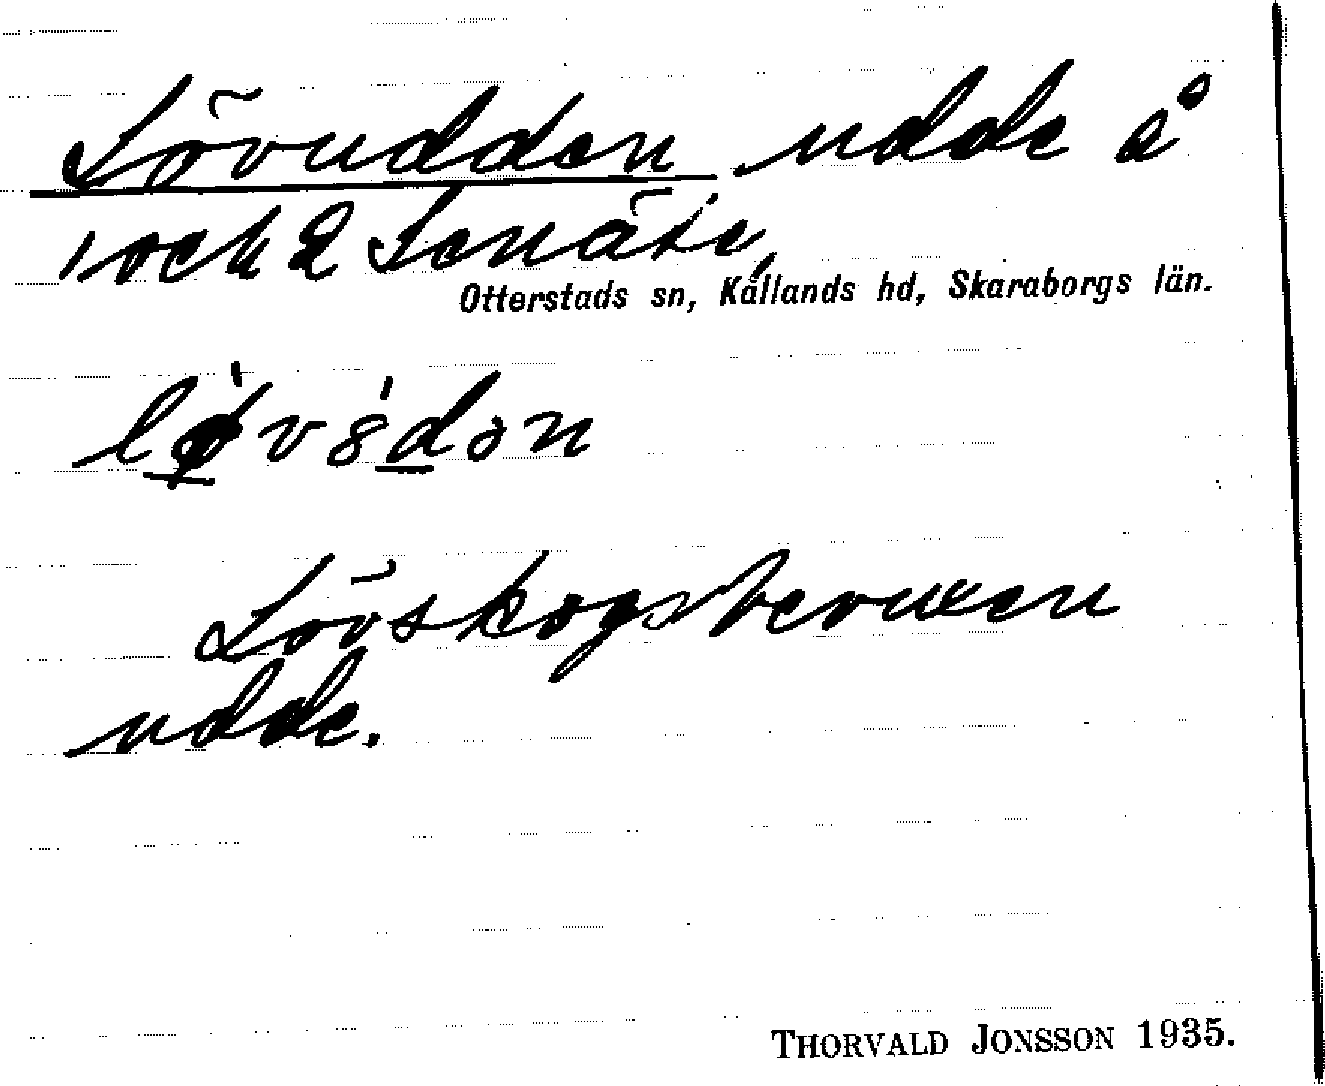 Lövudden udde å
1 och 2 Senäte,
Otterstads sn, Kållands hd, Skaraborgs län.
løv8dən
Lövskogsbevuxen
udde.
THORVALD JONSSON 1935.